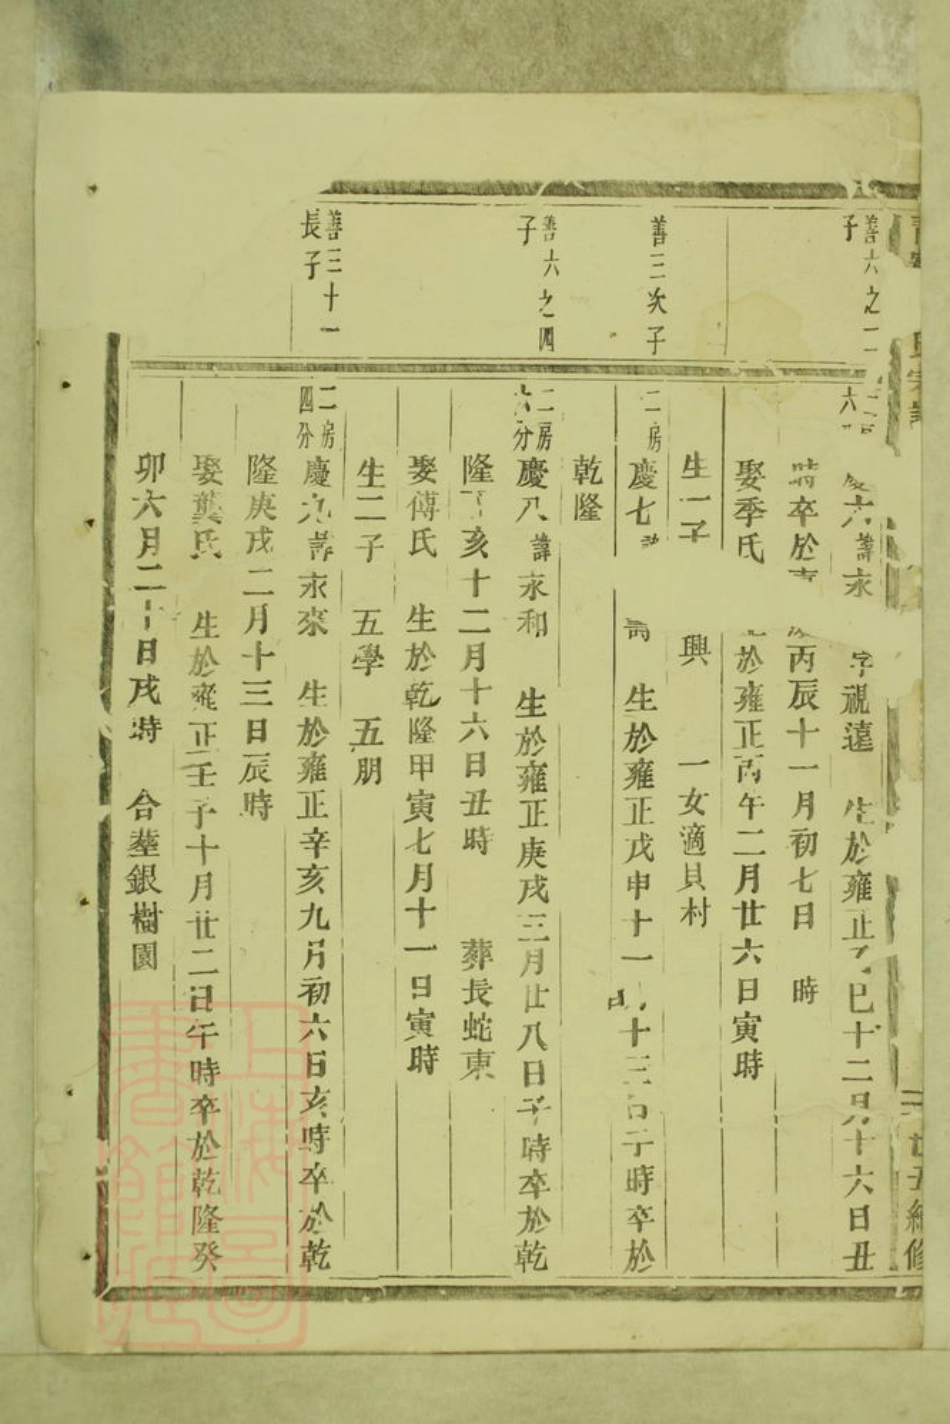 善六之二
子
善三次子
善六之四
子
善三十一
長子
六
六諱永 字視遠 生於雍正 巳十二月十六日丑
時卒於 丙辰十一月初七日 時
娶季氏 於雍正丙午二月廿六日寅時
生一子 興 一女適貝村
二房
慶七 生於雍正戊申十一 十三日子時卒於
乾隆
二房
六分
慶八諱永和 生於雍正庚戌三月廿八日子時卒於乾
隆 亥十二月十六日丑時 葬長蛇東
娶傅氏 生於乾隆甲寅七月十一日寅時
生二子 五學 五朋
二房
四分
慶九諱永來 生於雍正辛亥九月初六日亥時卒於乾
隆庚戌二月十三日辰時
娶龔氏 生於雍正壬子十月廿二日午時卒於乾隆癸
卯六月二十日戌時 合塟銀樹園